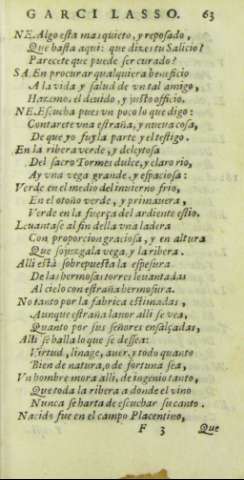 GARCI LASSO. 63
NE. Algo esta mas quieto, y reposado,
Que hasta aqui: que dizes tu Salicio?
Parecete que puede ser curado?
SA. En procurar qualquiera beneficio
A la vida y salud de vn tal amigo,
Haremo. el deuido, y justo officio.
NE. Escucha pues vn poco lo que digo:
Contarete vna estraña, y nueua cosa,
De que yo fuy la parte y el testigo.
En la ribera verde, y deleytosa
Del sacro Tormes dulce, y claro rio,
Ay vna vega grande, y espaciosa:
Verde en el medio del inuierno frio,
En el otoño verde, y primauera,
Verde en la fuerça del ardiente estio.
Leuantase al fin della vna ladera
Con proporcion graciosa, y en altura
Que sojuzgala vega, y la ribera.
Alli está sobrepuesta la espesura
De las hermosas torres leuantadas
Al cielo con estraña hermosura.
No tanto por la fabrica estimadas,
Aunque estraña lauor alli se vea,
Quanto por sus señores ensalçadas,
Alli se halla lo que se dessea:
Virtud, linage, auer, y todo quanto
Bien de natura, o de fortuna sea,
Vn hombre mora alli, de ingenio tanto,
Que toda la ribera a donde el vino
Nunca se harta de escuchar su canto.
Nacido fue en el campo Placentino,
F 3 Que